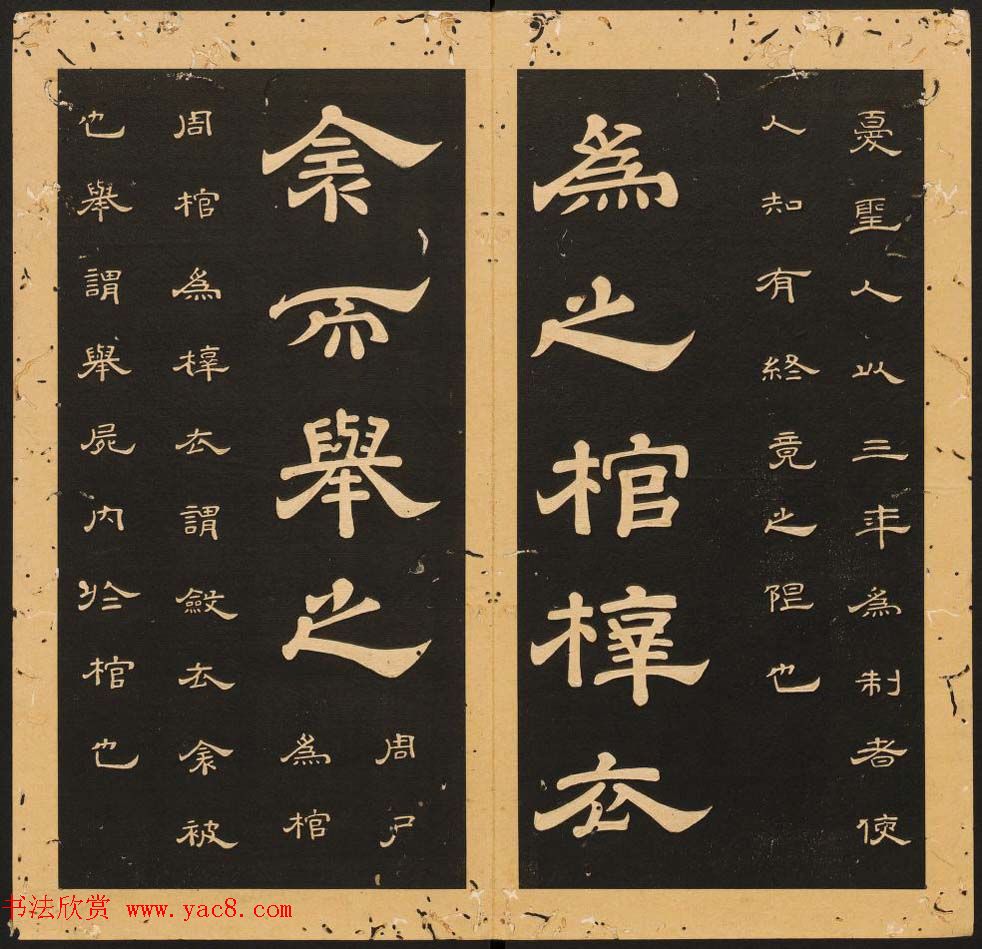 憂聖人以三年為制者使
人知有終竟之限也
為之棺椁衣
衾而舉之
周尸
為棺
周棺為椁衣謂斂衣衾被
也舉謂舉屍內於棺也
书法欣赏 www.yac8.com